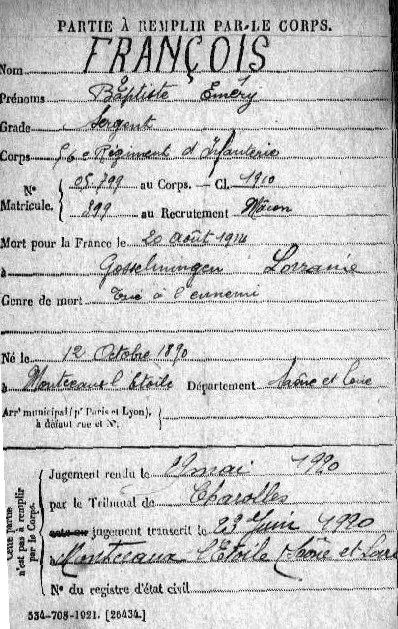 PARTIE À REMPLIR PAR LE CORPS.
FRANÇOIS
Nom
Prénoms Baptiste Emery
Grade Sergent
Corps 56e Régiment d'Infanterie
N° 05.799 au Corps. — Cl. 1910
Matricule. 899 au Recrutement Macon
Mort pour la France le 20 Août 1914
à Gosselmingen Lorraine
Genre de mort Tué à l'ennemi
Né le 12 Octobre 1890
à Montceaux l'Etoile Département Saône et Loire
Arr' municipal (p' Paris et Lyon),
à défaut rue et N°.
Cette partie
n'est pas à remplir
par le Corps.
Jugement rendu le mai 1920
par le Tribunal de Charolles
jugement transcrit le 23 Juin 1920
à Montceaux l'Etoile Saône et Loire
N° du registre d'état civil
534-708-1921. [26434.]